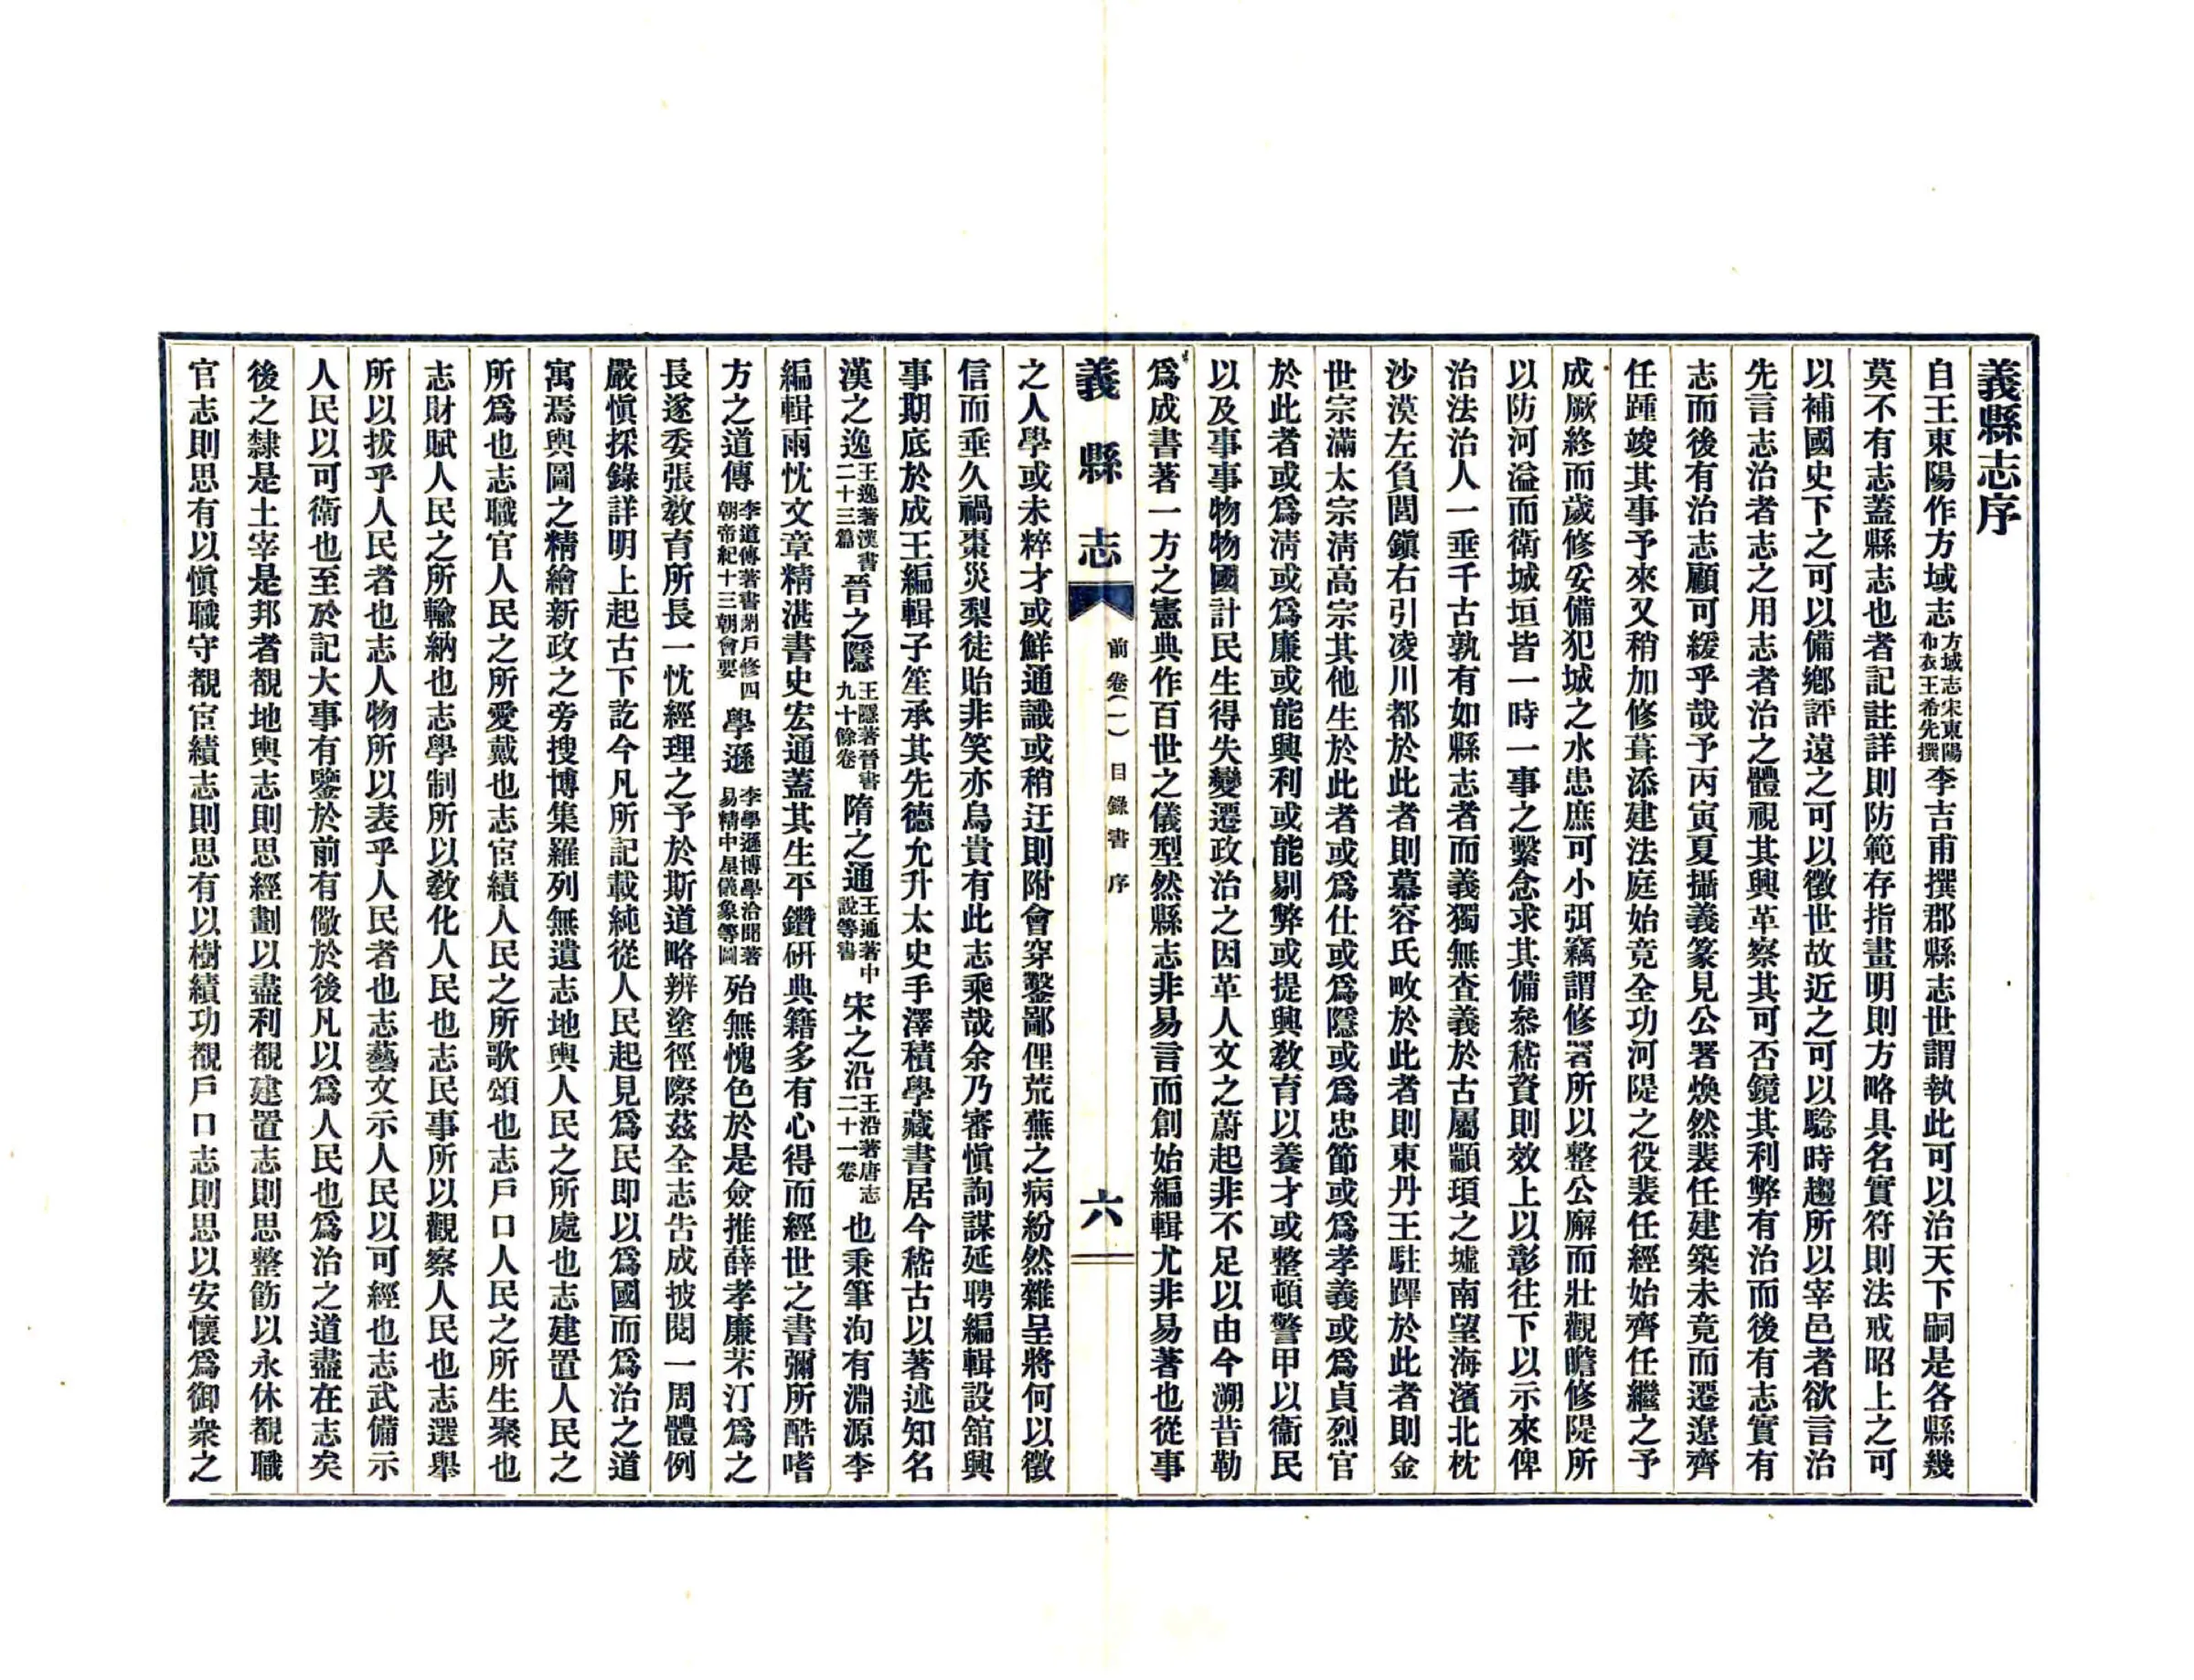 義縣志序
自王東陽作方域志方域志宋東陽布衣王希先撰李吉甫撰郡縣志世謂執此可以治天下嗣是各縣幾
莫不有志蓋縣志也者記註詳則防範存指畫明則方略具名實符則法戒昭上之可
以補國史下之可以備鄉評遠之可以徵世故近之可以騐時趨所以宰邑者欲言治
先言志治者志之用志者治之體視其興革察其可否鏡其利弊有治而後有志實有
志而後有治志顧可緩乎哉予丙寅夏攝義篆見公署煥然裴任建築未竟而遷遼齊
任踵竣其事予來又稍加修葺添建法庭始竟全功河隄之役裴任經始齊任繼之予
成厥終而歲修妥備犯城之水患庶可小弭竊謂修署所以整公廨而壯觀瞻修隄所
以防河溢而衛城垣皆一時一事之繫念求其備叅嵇資則效上以彰往下以示來俾
治法治人一垂千古孰有如縣志者而義獨無查義於古屬顓頊之墟南望海濱北枕
沙漠左負閭鎭右引凌川都於此者則慕容氏畋於此者則東丹王駐蹕於此者則金
世宗滿太宗淸高宗其他生於此者或爲仕或爲隱或爲忠節或爲孝義或爲貞烈官
於此者或爲淸或爲廉或能興利或能剔弊或提興敎育以養才或整頓警甲以衞民
以及事事物物國計民生得失變遷政治之因革人文之蔚起非不足以由今溯昔勒
爲成書著一方之憲典作百世之儀型然縣志非易言而創始編輯尤非易著也從事
義縣志 前卷(一) 目錄書 序 六
之人學或未粹才或鮮通識或稍迂則附會穿鑿鄙俚荒蕪之病紛然雜呈將何以徵
信而垂久禍棗災梨徒貽非笑亦烏貴有此志乘哉余乃審愼詢謀延聘編輯設舘興
事期底於成王編輯子笙承其先德允升太史手澤積學藏書居今嵇古以著述知名
漢之逸王逸著漢書二十三篇晉之隱王隱著晉書九十餘卷隋之通王通著中說等書宋之沿王沿著唐志二十一卷也秉筆洵有淵源李
編輯雨忱文章精湛書史宏通蓋其生平鑽研典籍多有心得而經世之書彌所酷嗜
方之道傳李道傳著書閉戶修四朝帝紀十三朝會要學遜李學遜博學洽聞著易精中星儀象等圖殆無愧色於是僉推薛孝廉芣汀爲之
長遂委張敎育所長一忱經理之予於斯道略辨塗徑際茲全志告成披閱一周體例
嚴愼採錄詳明上起古下訖今凡所記載純從人民起見爲民即以爲國而爲治之道
寓焉輿圖之精繪新政之旁搜博集羅列無遺志地輿人民之所處也志建置人民之
所爲也志職官人民之所愛戴也志宦績人民之所歌頌也志戶口人民之所生聚也
志財賦人民之所輸納也志學制所以敎化人民也志民事所以觀察人民也志選舉
所以拔乎人民者也志人物所以表乎人民者也志藝文示人民以可經也志武備示
人民以可衛也至於記大事有鑒於前有儆於後凡以爲人民也爲治之道盡在志矣
後之隸是土宰是邦者覩地輿志則思經劃以盡利覩建置志則思整飭以永休覩職
官志則思有以愼職守覩宦績志則思有以樹績功覩戶口志則思以安懷爲御衆之